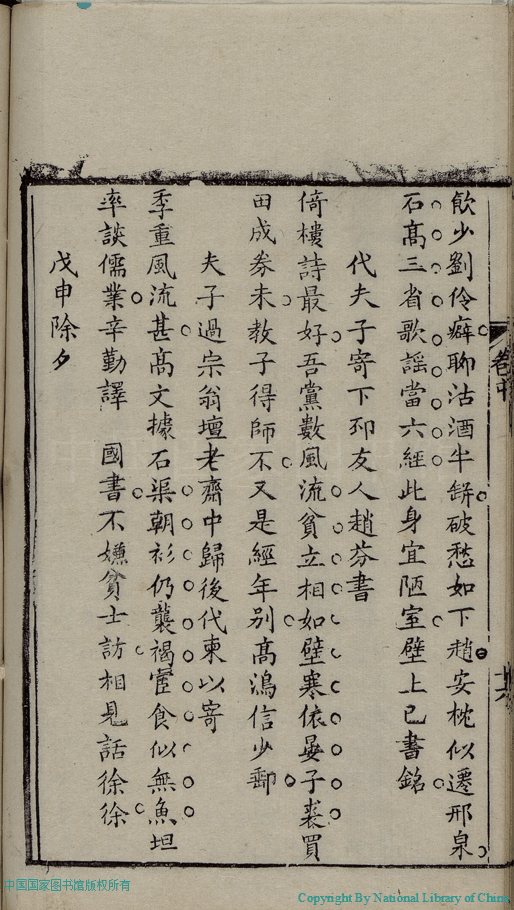 飲少劉伶癖聊沽酒半缾破愁如下趙安枕似遷邢泉
石髙三省歌謡當六經此身宜陋室壁上已書銘
代夫子寄下邳友人趙芬書
倚樓詩最好吾黨數風流貧立相如壁寒依晏子裘買
田成券未教子得師不又是經年别髙鴻信少郵
夫子過宗翁壇老齋中歸後代柬以寄
季重風流甚髙文據石渠朝衫仍襲褐宦食似無魚坦
率談儒業辛勤譯 國書不嫌貧士訪相見話徐徐
戊申除夕
卷中
十六
中国国家图书馆版权所有
Copyright By National Library of China